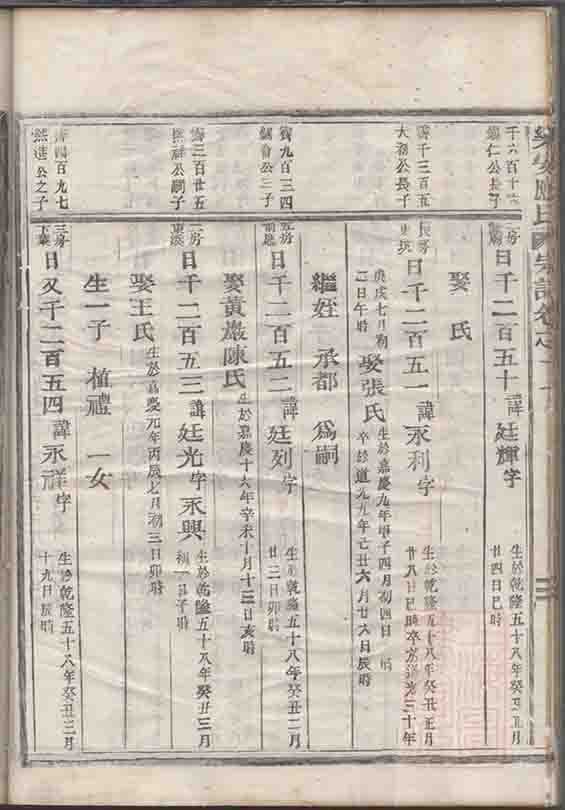 氏宗譜卷之
千六百十
仁公長子
二房
日千二百五十 諱廷輝字
生於乾隆五十八年癸丑正月
廿四日巳時
娶 氏
千三百五
大 公長子
長房
日千二百五一 諱永利字
生於乾隆五十八年癸丑正月
廿八日巳時卒於道光三十年
庚戌七月初
二日午時
娶張氏
生於嘉慶九年甲子四月初四日 時
卒於道光九年己丑六月廿六日辰時
繼姪 承都 為嗣
九百三四
公三子
日千二百五二 諱廷列字
生於乾隆五十八年癸丑二月
廿三日卯時
娶黃巖陳氏
生於嘉慶十六年辛未十月十三日亥時
三百廿五
公嗣子
二房
日千二百五三 諱廷光字永興
生於乾隆五十八年癸丑三月
初一日子時
娶王氏
生於嘉慶元年丙辰七月初三日卯時
生一子 植禮 一女
四百九七
公之子
三房
日又千二百五四 諱永祥字
生於乾隆五十八年癸丑三月
十九日辰時